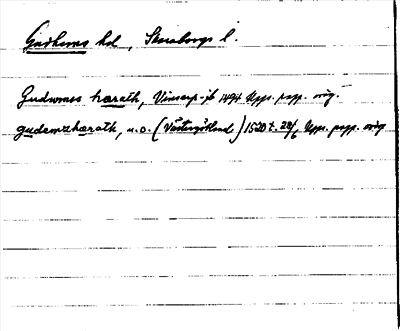 Gudhems hd, Skaraborgs l.
Gudwmss hærath, Vinsarp-jb 1494 Upps. papp. orig.
gudemzhærath, u.o. (Västergötland) 1520 t. 28/6 Upps. papp. orig